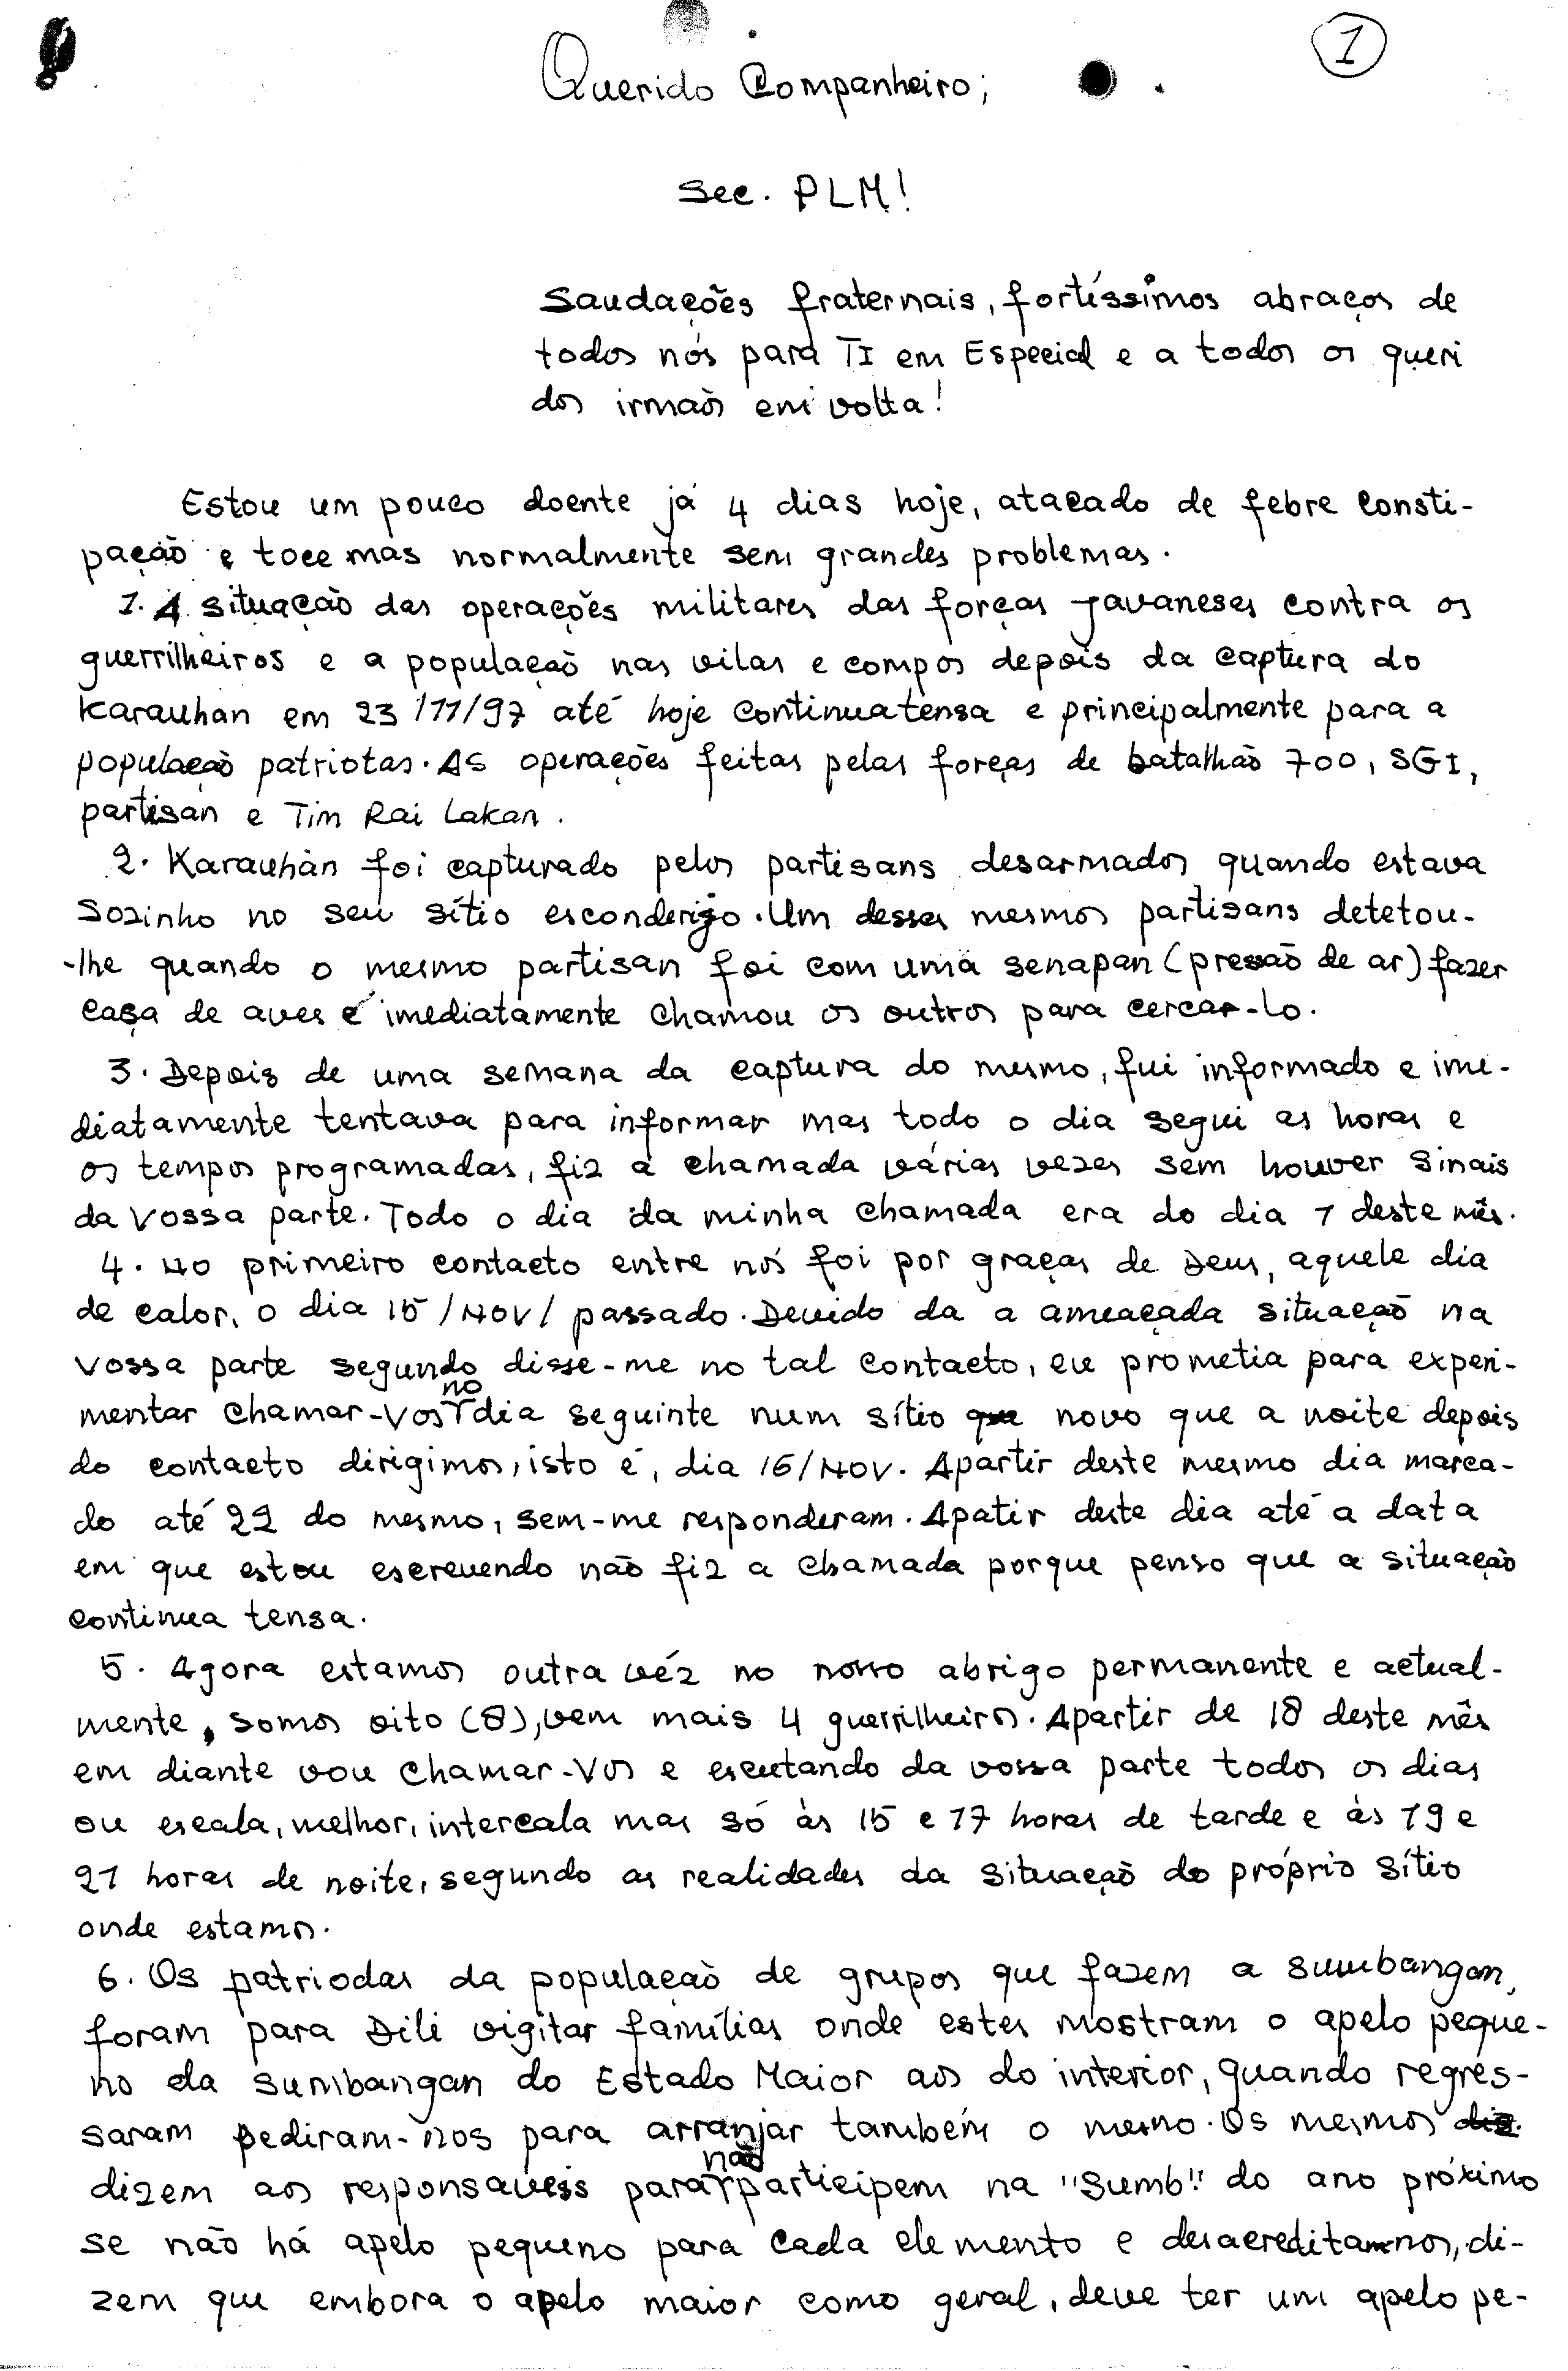 1
Querido Companheiro;
Sec. PLM!
Saudações fraternais, fortíssimos abraços de
todos nós para TI em Especial e a todos os queri
dos irmãos em volta!
Estou um pouco doente já 4 dias hoje, atacado de febre consti-
pação e toce mas normalmente sem grandes problemas.
1. A situação das operações militares das forças javaneses contra os
guerrilheiros e a população nas vilas e compos depois da captura do
Karauhan em 23/11/97 até hoje continua tensa e principalmente para a
população patriotas. As operações feitas pelas forças de batalhão 700, SGI,
partisan e Tim Rai Lakan.
2. Karauhàn foi capturado pelos partisans desarmados quando estava
sozinho no seu sítio esconderijo. Um desses mesmos partisans detetou-
-lhe quando o mesmo partisan foi com uma senapan (presão de ar) fazer
caça de aves e imediatamente chamou os outros para cercar-lo.
3. Depois de uma semana da captura do mesmo, fui informado e ime-
diatamente tentava para informar mas todo o dia segui as horas e
os tempos programadas, fiz a chamada várias vezes sem houver sinais
da vossa parte. Todo o dia da minha chamada era do dia 1 deste mês.
4. No primeiro contacto entre nós foi por graças de Deus, aquele dia
de calor, o dia 15/NOV/ passado. Devido da a ameaçada situação na
vossa parte segundo disse-me no tal contacto, eu prometia para experi-
mentar chamar-vos no dia seguinte num sítio novo que a noite depois
do contacto dirigimos, isto é, dia 16/NOV. Apartir deste mesmo dia marca-
do até 22 do mesmo, sem-me responderam. Apatir deste dia até a data
em que estou escrevendo não fiz a chamada porque penso que a situação
continua tensa.
5. Agora estamos outra véz no nosso abrigo permanente e actual-
mente, somos oito (8), vem mais 4 guerrilheiros. Apartir de 18 deste mês
em diante vou chamar-vos e escutando da vossa parte todos os dias
ou escala, melhor, intercala mas só às 15 e 17 horas de tarde e às 19 e
21 horas de noite, segundo as realidades da situação do próprio sítio
onde estamos.
6. Os patriodas da população de grupos que fazem a sumbangan,
foram para Dili vigitar famílias onde estes mostram o apelo peque-
no da sumbangan do Estado Maior aos do interior, quando regres-
saram pediram-nos para arranjar também o mesmo. Os mesmos
dizem aos responsaveis para não participem na "Sumb" do ano próximo
se não há apelo pequeno para cada elemento e desacreditamnos, di-
zem que embora o apelo maior como geral, deve ter um apelo pe-